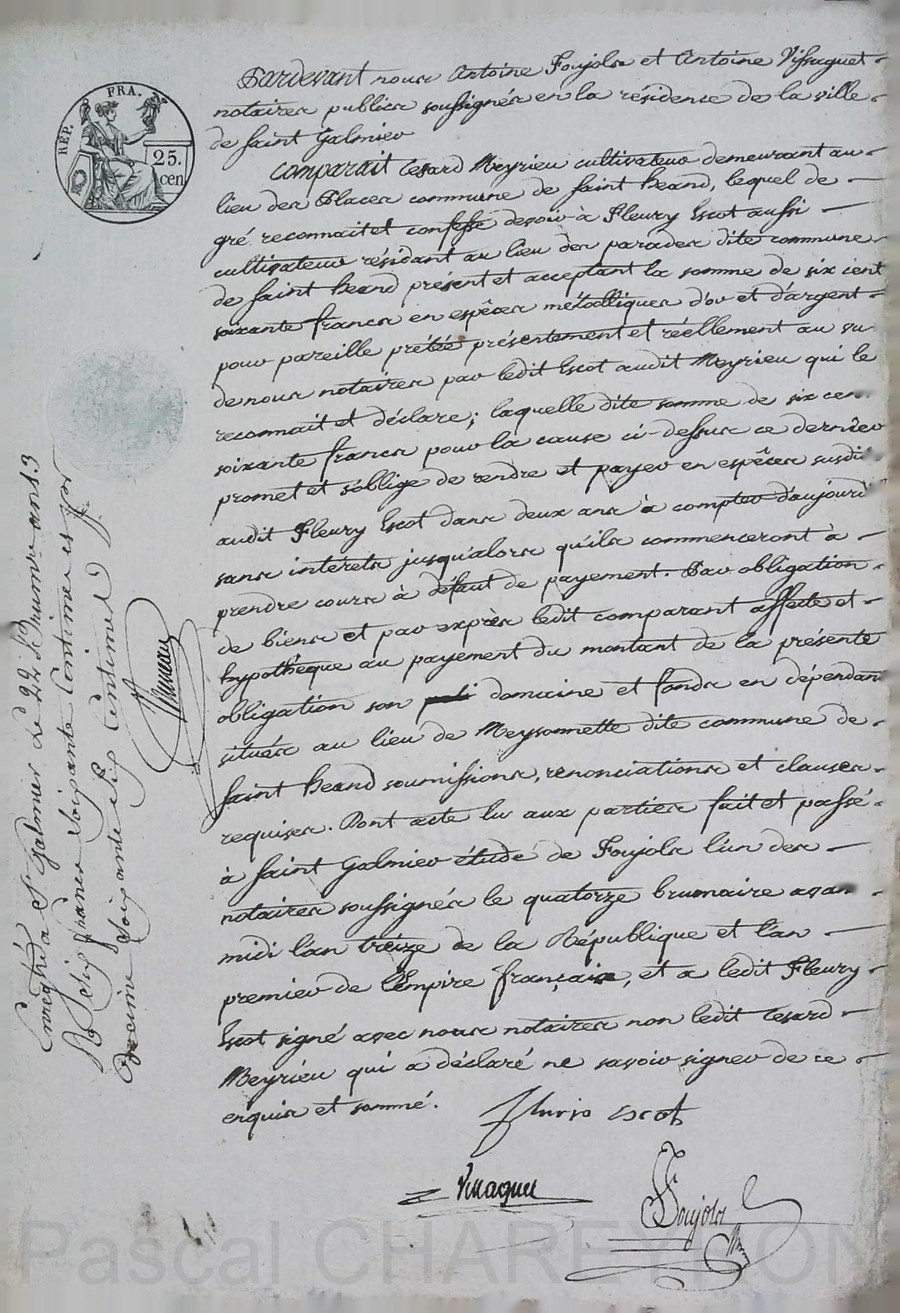 RÉP. FRA.
25.
cen
Pardevant nous Antoine Foujols et Antoine Vissaguet
notaires publics soussignés en la résidence de la ville
de saint Galmier
Comparait Cesard Meyrieu cultivateur demeurant au
lieu des Places commune de saint heand, lequel de
gré reconnait et confesse devoir à Fleury Escot aussi
cultivateur résidant au lieu des parades dite commune
de saint heand présent et acceptant la somme de six cent
soixante francs en espêces métalliques d'or et d'argent
pour pareille prétée présentement et réellement au vu
de nous notaires par ledit Escot audit Meyrieu qui le
reconnait et déclare; laquelle dite somme de six cen
soixante francs pour la cause ci-dessus ce dernier
promet et s'oblige de rendre et payer en espêces susdi
audit Fleury Escot dans deux ans à compter d'aujourd
sans intérets jusqu'alors qu'ils commenceront à
prendre cours à défaut de payement. Par obligation
de biens et par exprès ledit comparant affecte et
hypothèque au payement du montant de la présente
obligation son domaine et fonds en dépendan
situés au lieu de Meysonnette dite commune de
saint heand soumissions, renonciations et clauses
requises. Dont acte lu aux parties fait et passé
à saint Galmier étude de Foujols l'un des
notaires soussignés le quatorze brumaire avan
midi l'an treize de la République et l'an
premier de l'Empire français, et a ledit Fleury
Escot signé avec nous notaires non ledit Cesard
Meyrieu qui a déclaré ne savoir signer de ce
enquis et sommé.
fleurio escot
Vissaguet
Foujols
Enregistré à St Galmier le 22 Brumre an 13
R Six francs Soixante Centimes et pr
Decime Soixante six Centimes
Pascal CHAREYRON